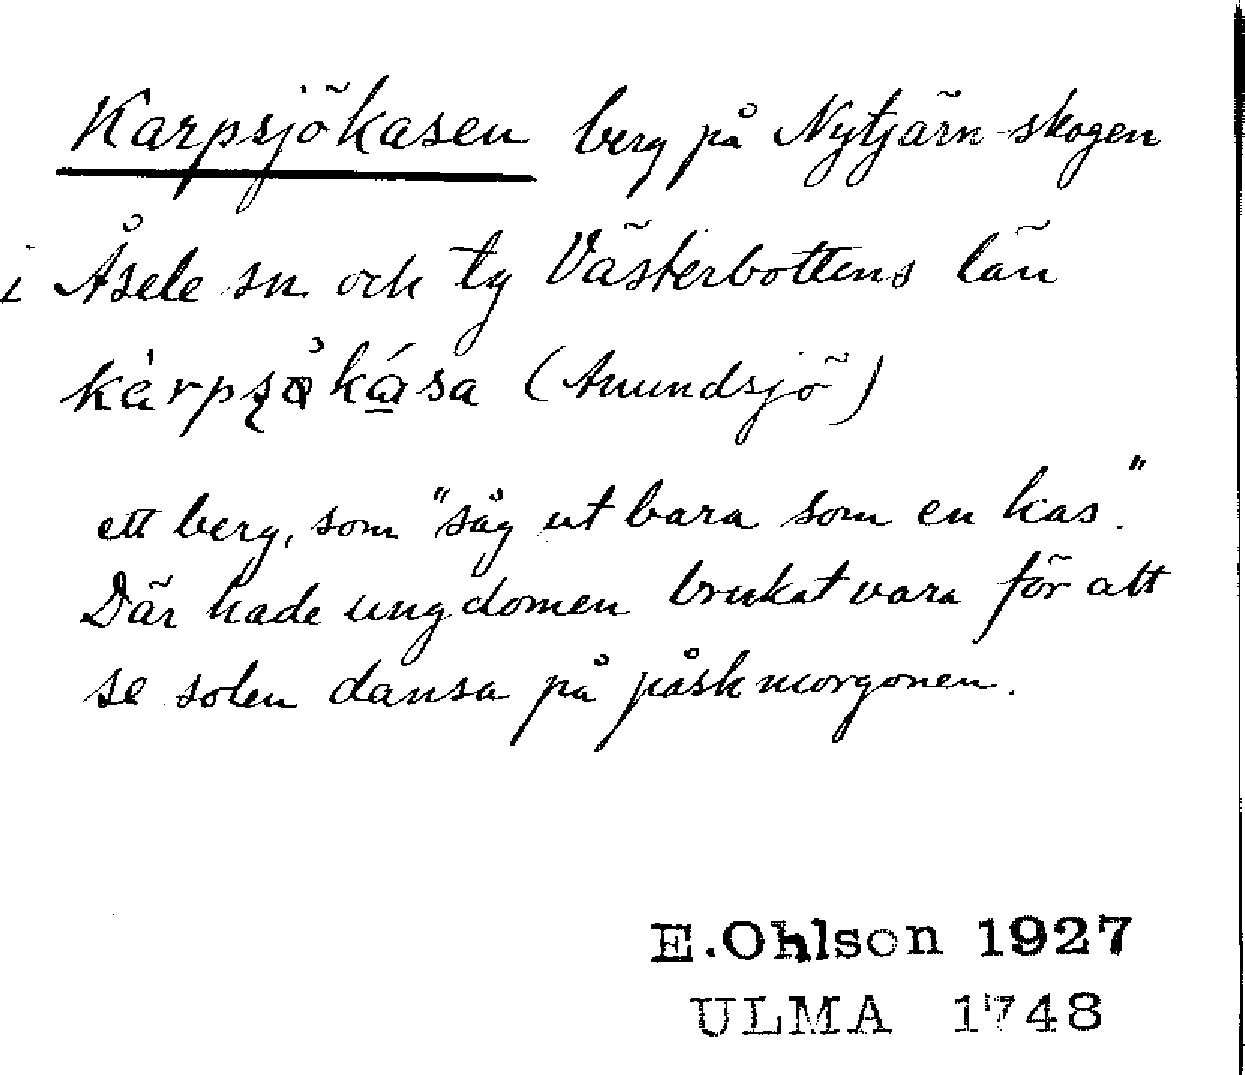 Karpsjökasen berg på Nytjärn-skogen
i Åsele sn och tg Västerbottens län
(Anundsjö)
ett berg, som "såg ut bara som en kas."
Där hade ungdomen brukat vara för att
se solen dansa på påskmorgonen.
E.Ohlson 1927
ULMA 1748